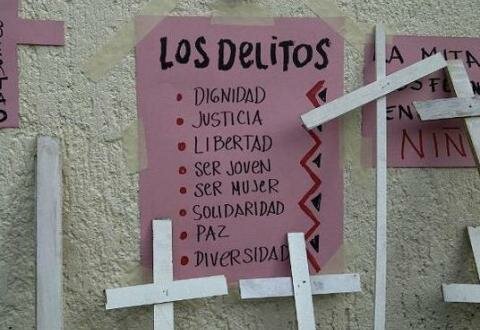 LOS DELITOS
• DIGNIDAD
• JUSTICIA
• LIBERTAD
• SER JOVEN
• SER MUJER
• SOLIDARIDAD
• PAZ
• DIVERSIDAD
LA MITA
EN
NIÑ